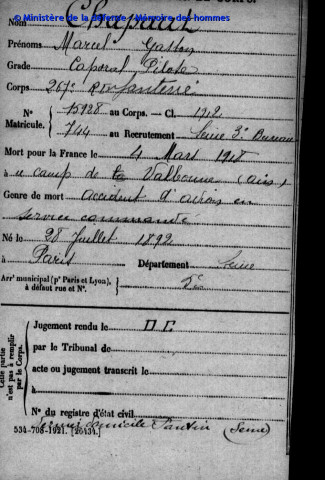 © Ministère de la défense - Mémoire des hommes
Nom Chapaux
Prénoms Marcel Gaston
Grade Caporal Pilote
Corps 267e Rt Infanterie
N° Matricule. 15928 au Corps. — Cl. 1912
744 au Recrutement Seine 3e Bureau
Mort pour la France le 4 Mars 1918
à u camp de la Valbonne (Ain)
Genre de mort accident d'avion en
service commandé
Né le 28 Juillet 1892
à Paris Département Seine
Arrt municipal (pr Paris et Lyon), à défaut rue et N°. 2e
Cette partie n'est pas à remplir par le Corps.
Jugement rendu le D C
par le Tribunal de
acte ou jugement transcrit le
à
N° du registre d'état civil
domicile Pantin (Seine)
534-708-1921. [26434.]